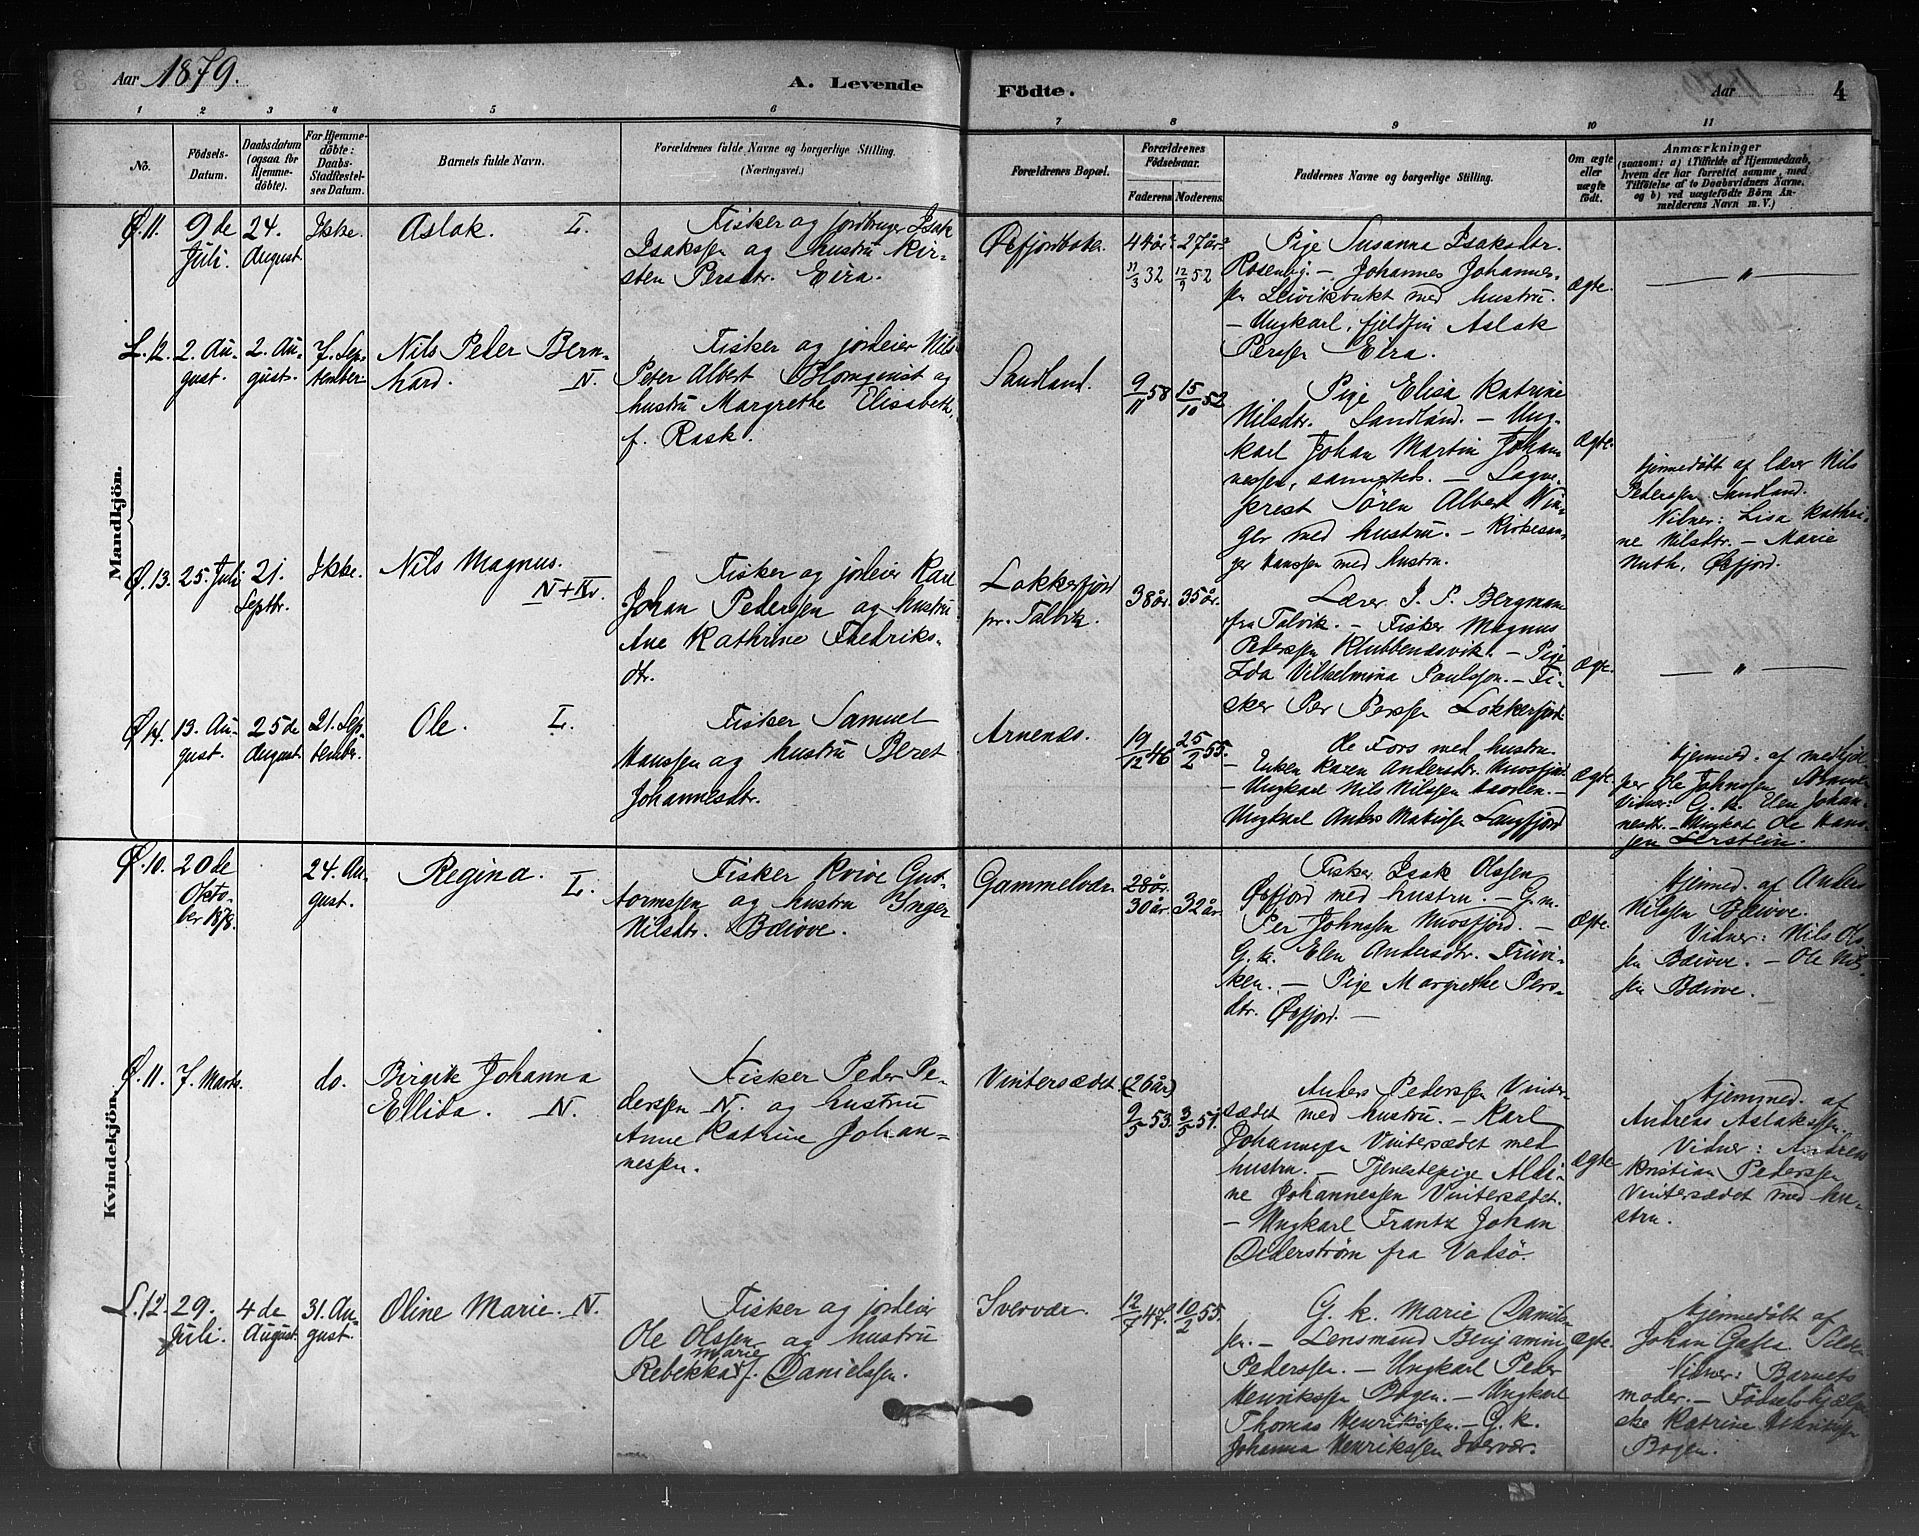 Aar 1879.
A. Levende Födte.
Aar
4
1 2 3 4 5 6 7 8 9 10 11
No.
Födsels-Datum.
Daabsdatum (ogsaa for Hjemme-döbte).
For Hjemme-döbte: Daabs-Stadfæstel-ses Datum.
Barnets fulde Navn.
Forældrenes fulde Navne og borgerlige Stilling. (Næringsvei.)
Forældrenes Bopæl.
Forældrenes Födselsaar.
Faderens. Moderens.
Faddernes Navne og borgerlige Stilling.
Om ægte eller uægte födt.
Anmærkninger
(saasom: a) i Tilfælde af Hjemmedaab, hvem der har forrettet samme, med Tilföielse af to Daabsvidners Navne, og b) ved uægtefödte Börn An-melderens Navn m. V.)
Mandkjön.
Ø. 11. 9de Juli. 24. August Ikke. Aslak. L.
Fisker og jordbruger Isak
Isakssen og hustru Kir-
sten Persdtr. Eira.
Øxfjordbotn. 44 år 27 år
11/3 32 12/9 52
Pige Susanna Isaksdtr.
Johannes Johannes-
sen Leivikbukt med hustru.
– Ungkarl, fjeldfin Aslak
Perssen Eira.
Ægte. — „ —
L. 12. 2. Au-gust. 2. Au-gust. 7. Sep-tember. Nils Peder Bern-
hard. N.
Fisker og jordeier Nils
Peter Albert Blomqvist og
hustru Margrethe Elisabeth,
f. Rask.
Sandland. 9/11 58 15/10 52
Pige Elisa Katrine
Nilsdtr. Sandland. – Ung-
karl Johan Martin Johan-
nessen, sammested. – Sogne-
prest Sören Albert Win-
ger med hustru. – Kirkesan-
ger Hanssen med hustru.
Ægte.
Hjemmedöbt af lærer Nils
Pederssen Sandland.
Vidner: Lisa Kathri-
ne Nilsdtr. – Marie
Muth, Øxfjord.
Ø. 13. 25. Juli 21. Septbr. Ikke. Nils Magnus.
N+Kv.
Fisker og jordeier Karl
Johan Pederssen og hustru
Ane Kathrine Fredriks-
dtr.
Lokkerfjord
pr. Talvik.
38 år. 35 år.
Lærer J. P. Bergman
fra Talvik. – Fisker Magnus
Pederssen Klubbenesvik. – Pige
Ida Vilhelmina Paulssen. – Fi-
sker Per Perssen Lokkerfjord
Ægte. — „ —
Ø. 14. 13. Au-gust. 25de August. 21. Sep-tembr. Ole. L.
Fisker Samuel
Hanssen og hustru Beret
Johannesdtr.
Arnenæs. 19/12 46 25/2 55.
de Fors med hustru.
– Enken Karen Andersdtr.
– Ungkarl Nils Nilssen –
Ungkarl Anders Langfjord
Ægte.
Hjemmed. af medhjel-
per Ole Johnssen
Vidner: G. k. Elen Johan-
nesdtr. – Ungkarl Ole Hans-
sen
Kvindekjön.
Ø. 10. 20de Okto-ber 1878. 24. Au-gust. Regina. L.
Fisker Kvive Gut-
tormssen og hustru Inger
Nilsdtr. Bæivve.
Gammelvær. 28 år. 32 år.
30 år.
Fisker Isak Olssen
Øxfjord med hustru. – G. m.
Per Johnssen –
G. k. Elen Andersdtr.
– Pige Margrethe Pers-
dtr. Øxfjord. –
Ægte.
Hjemmed. af Anders
Nilssen Bæivve.
Vidner: Nils Ols-
sen Bæivve. – Ole Nils-
sen Bæivve. –
Ø. 11. 7. Marts. do. Birgit Johanna
Ellida. N.
Fisker Peder Pe-
derssen N. og hustru
Anne Katrine Johan-
nessen.
Vintersædet. (26 år)
9/5 53. 3/5 51.
Anders Pederssen Vinter-
sædet med hustru. – Karl
Johannessen Vintersædet med
hustru. – Tjenestepige Aldi-
ne Johannessen Vintersædet.
– Ungkarl Frantz Johan
Cederström fra Vadsö.
Ægte
Hjemmed. af
Andreas Aslakssen.
Vidner: Andreas
Kristian Pederssen
Vintersædet med hu-
stru.
L. 12. 29. Juli. 4de August. 31. Au-gust. Oline Marie. N.
Fisker og jordeier
Ole Olssen og hustru
Rebekka Marie f. Danielssen.
Svervær. 12/7 47. 10/2 55.
G. k. Marie Daniels-
sen. – Lensmand Benjamin
Pederssen. – Ungkarl Peder
Henrikssen Bogen. – Ungkarl
Thomas Henrikssen. – G. k.
Johanna Henrikssen Svervær.
Ægte.
Hjemmedöbt af
Johan
Vidner: Barnets
moder. – Födselshjælper-
ske Katrine Henrikssen
Bogen.